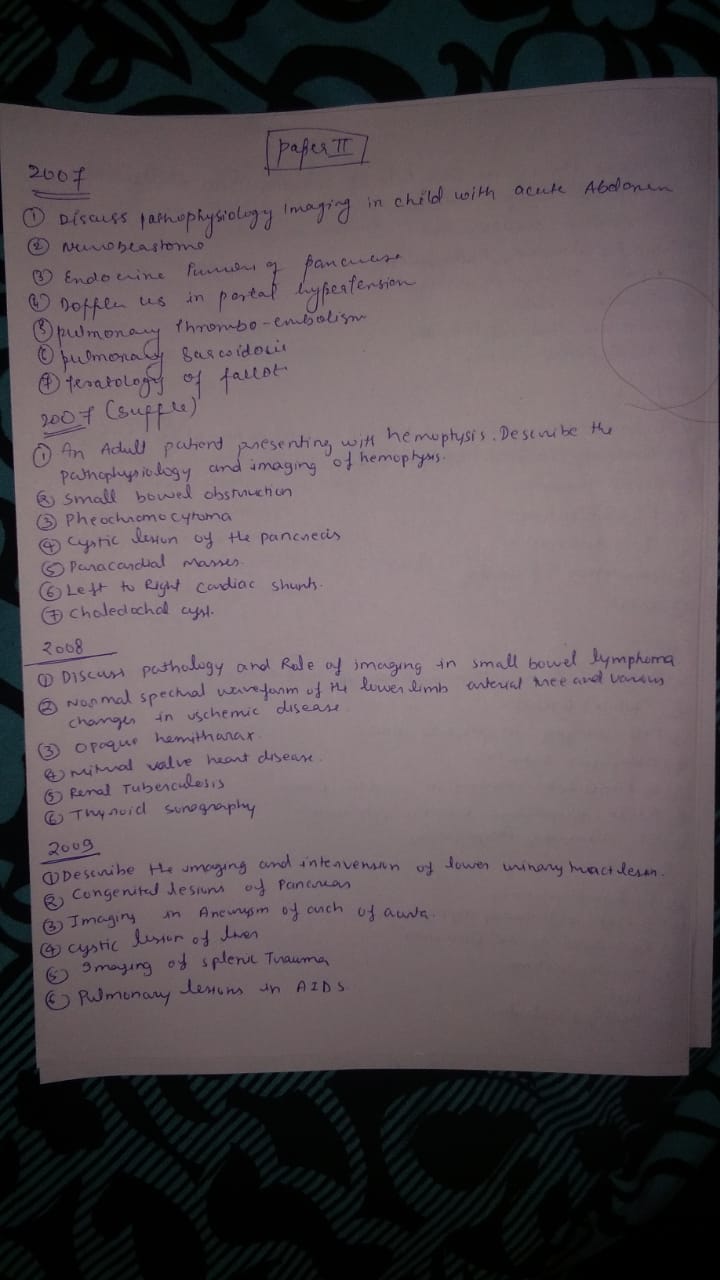 Paper II
2007
① Discuss pathophysiology Imaging in child with acute Abdomen
② Neuroblastoma
③ Endocrine Tumors of pancrease
④ Doppler us in portal hypertension
⑤ pulmonary thrombo-embolism
⑥ pulmonary Sarcoidosis
⑦ Teratology of fallot
2007 (supple)
① An Adult patient presenting with hemoptysis. Describe the
pathophysiology and imaging of hemoptysis.
② Small bowel obstruction
③ Pheochromocytoma
④ Cystic lesion of the pancreas
⑤ Paracardial masses.
⑥ Left to Right Cardiac shunts.
⑦ Choledochal cyst.
2008
① Discuss pathology and Role of imaging in small bowel lymphoma
② Normal spectral waveform of the lower limb arterial tree and various
changes in ischemic disease.
③ Opaque hemithorax.
④ mitral valve heart disease.
⑤ Renal Tuberculosis
⑥ Thyroid sonography
2009
① Describe the imaging and intervension of lower urinary tract lesion.
② Congenital lesions of Pancreas
③ Imaging in Aneurysm of arch of aorta.
④ cystic lesion of liver
⑤ Imaging of splenic Trauma
⑥ Pulmonary lesions in AIDS